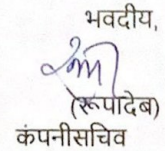 भवदीय,
(रूपादेब)
कंपनीसचिव